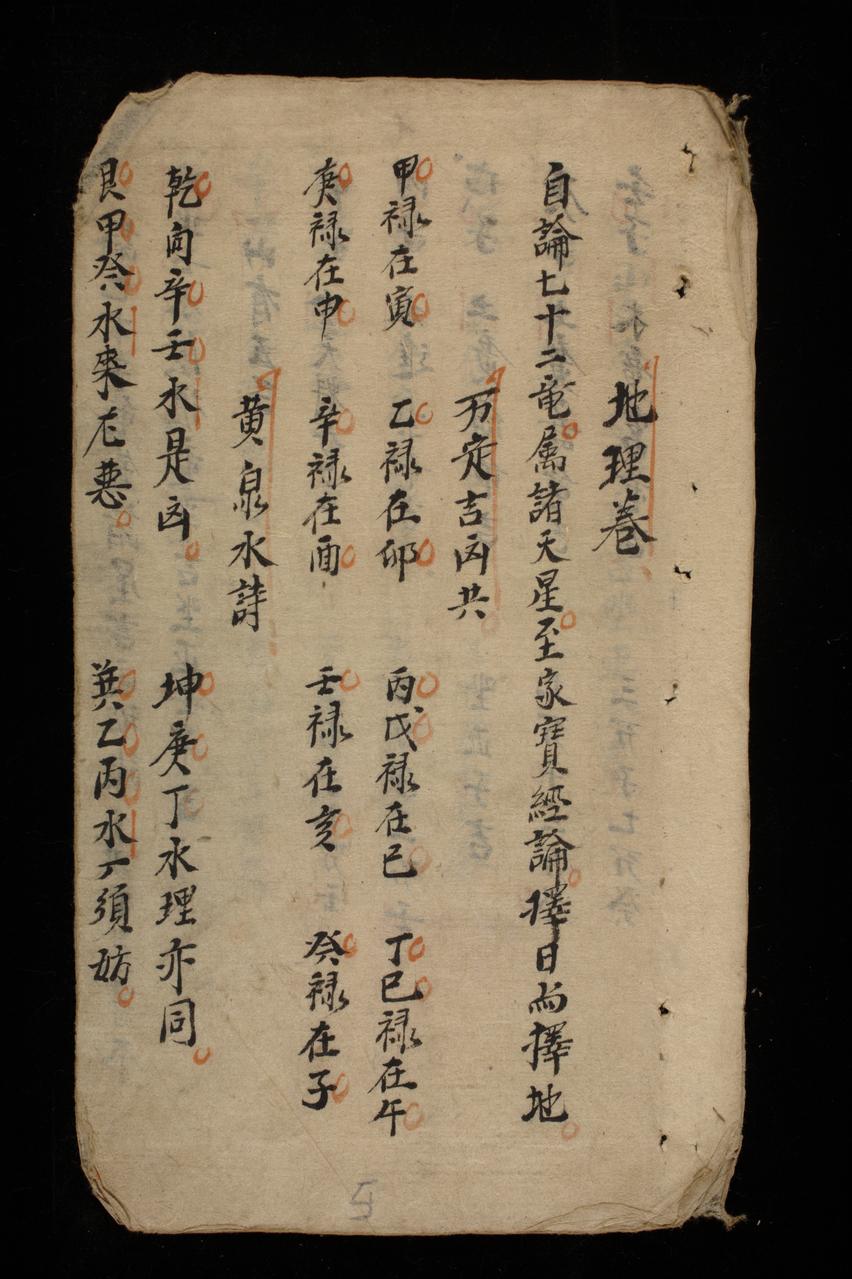 地理卷
自論七十二竜属諸天星至家寶經論擇日尚擇地
万定吉凶共
甲禄在寅 乙禄在卯 丙戊禄在巳 丁巳禄在午
庚禄在申 辛禄在酉 壬禄在亥 癸禄在子
黄泉水詩
乾向辛壬水是凶 坤庚丁水理亦同
艮甲癸水來尤惡 巽乙丙水須妨